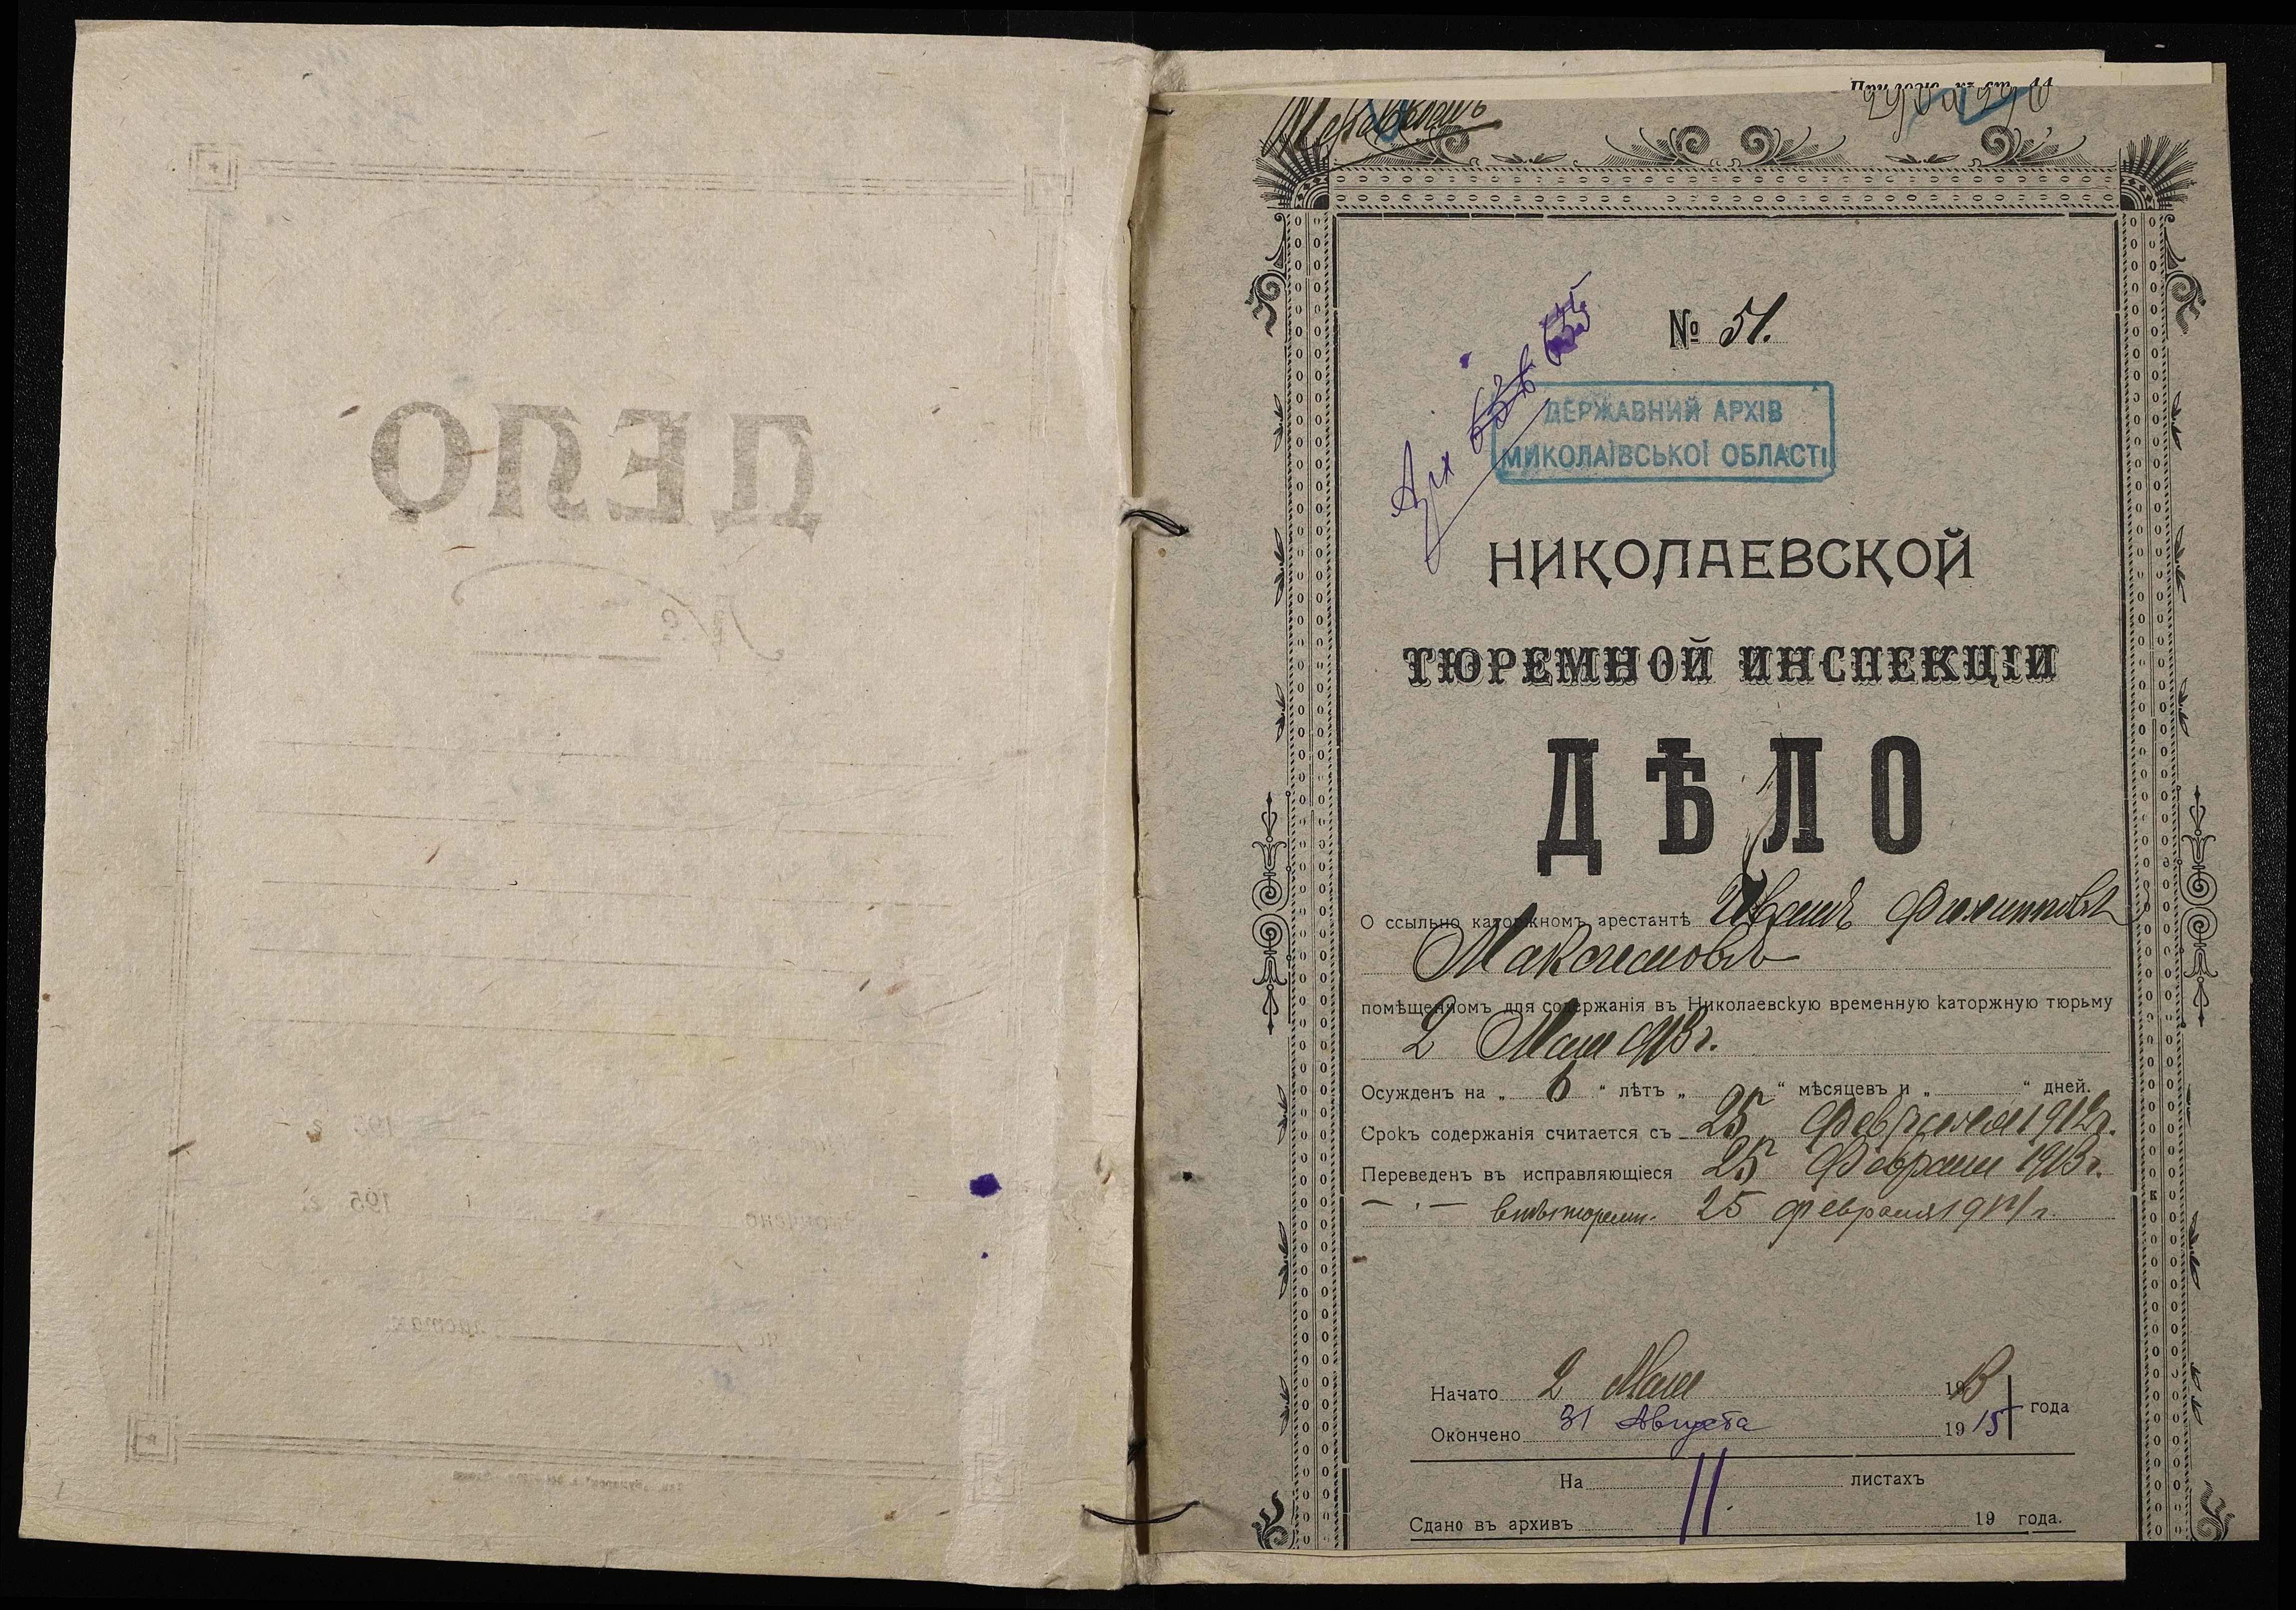 ДЕЛО
№
195 г.
листах
№ 51.
ДЕРЖАВНИЙ АРХІВ
МИКОЛАЇВСЬКОЇ ОБЛАСТІ
Арх
НИКОЛАЕВСКОЙ
ТЮРЕМНОЙ ИНСПЕКЦІИ
ДѢЛО
О ссыльно каторжномъ арестантѣ Иванѣ Филипповѣ
Максимовѣ
помѣщенномъ для содержанія въ Николаевскую временную каторжную тюрьму
2 Мая 1913 г.
Осужденъ на „ 6 “ лѣтъ „ “ мѣсяцевъ и „ “ дней.
Срокъ содержанія считается съ 25 Февраля 1912 г.
Переведенъ въ исправляющіеся 25 Февраля 1913 г.
— „ — внѣтюремн. 25 февраля 1914 г.
Начато 2 Мая 1913
года
Окончено 31 Августа 1915
На 11 листахъ
Сдано въ архивъ 19 года.